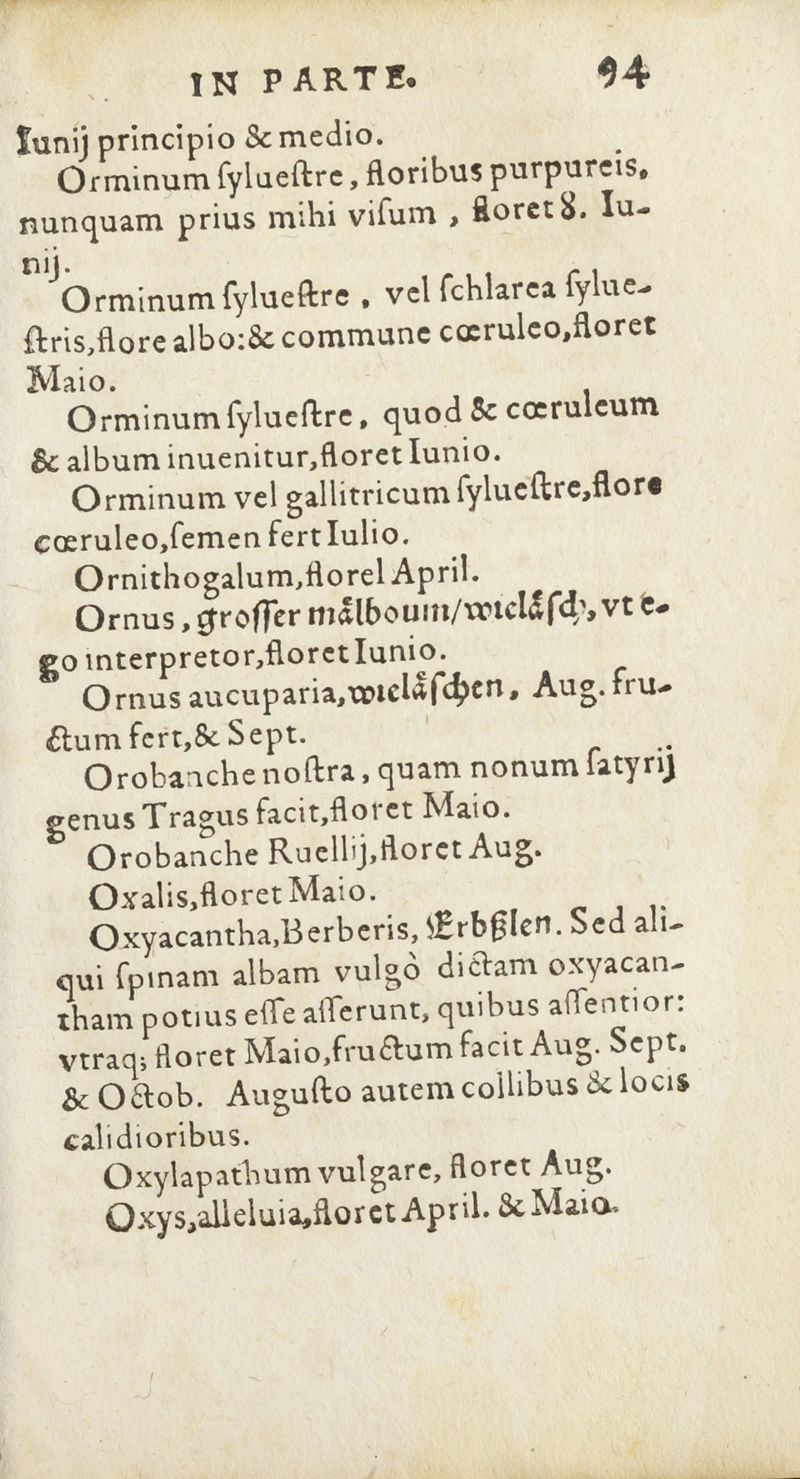 IN PARTE. 94
Iunij principio & medio.
Orminum ſylueſtre, floribus purpureis,
nunquam prius mihi viſum , floret 8. Iu-
nij.
Orminum ſylueſtre , vel ſchlarea ſylue-
ſtris,flore albo:& commune cœruleo,floret
Maio.
Orminum ſylueſtre, quod & cœruleum
& album inuenitur,floret Iunio.
Orminum vel gallitricum ſylueſtre,flore
cœruleo,ſemen fert Iulio.
Ornithogalum,florel April.
Ornus, groſſer mälboum/wielåſch, vt e-
go interpretor,floret Iunio.
Ornus aucuparia,wielåſchen, Aug. fru-
ctum fert,& Sept.
Orobanche noſtra, quam nonum ſatyrij
genus Tragus facit,floret Maio.
Orobanche Ruellij,floret Aug.
Oxalis,floret Maio.
Oxyacantha,Berberis, Erbßlen. Sed ali-
qui ſpinam albam vulgò dictam oxyacan-
tham potius eſſe aſſerunt, quibus aſſentior:
vtraq; floret Maio,fructum facit Aug. Sept.
& Octob. Auguſto autem collibus & locis
calidioribus.
Oxylapathum vulgare, floret Aug.
Oxys,alleluia,floret April. & Maio.